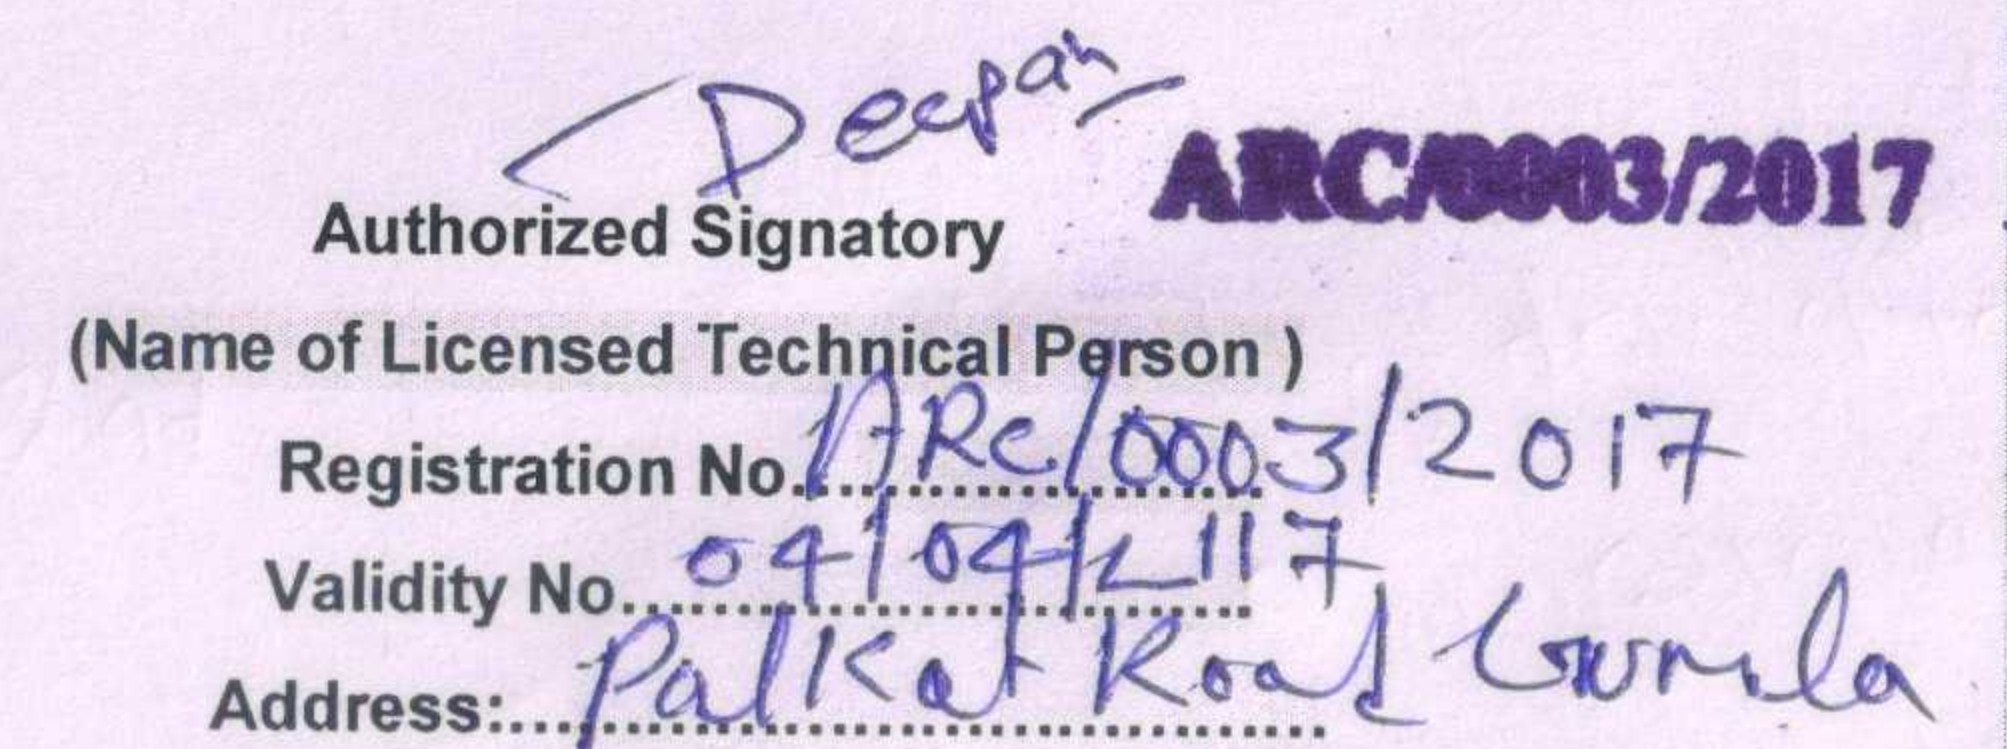 Deepak
ARC/0003/2017
Authorized Signatory
(Name of Licensed Technical Person )
Registration No. ARC/0003/2017
Validity No. 04/04/2117
Address: Palkat Road Gumla